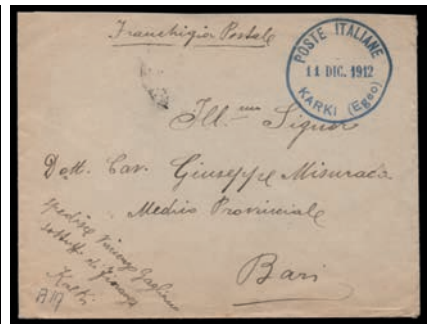 Franchigia Postale
POSTE ITALIANE
11 DIC. 1912
KARKI (Egeo)
Ill.mo Signor
Dott. Cav. Giuseppe Misuraca
Medico Provinciale
Bari
spedisce
di Finanza
Karki